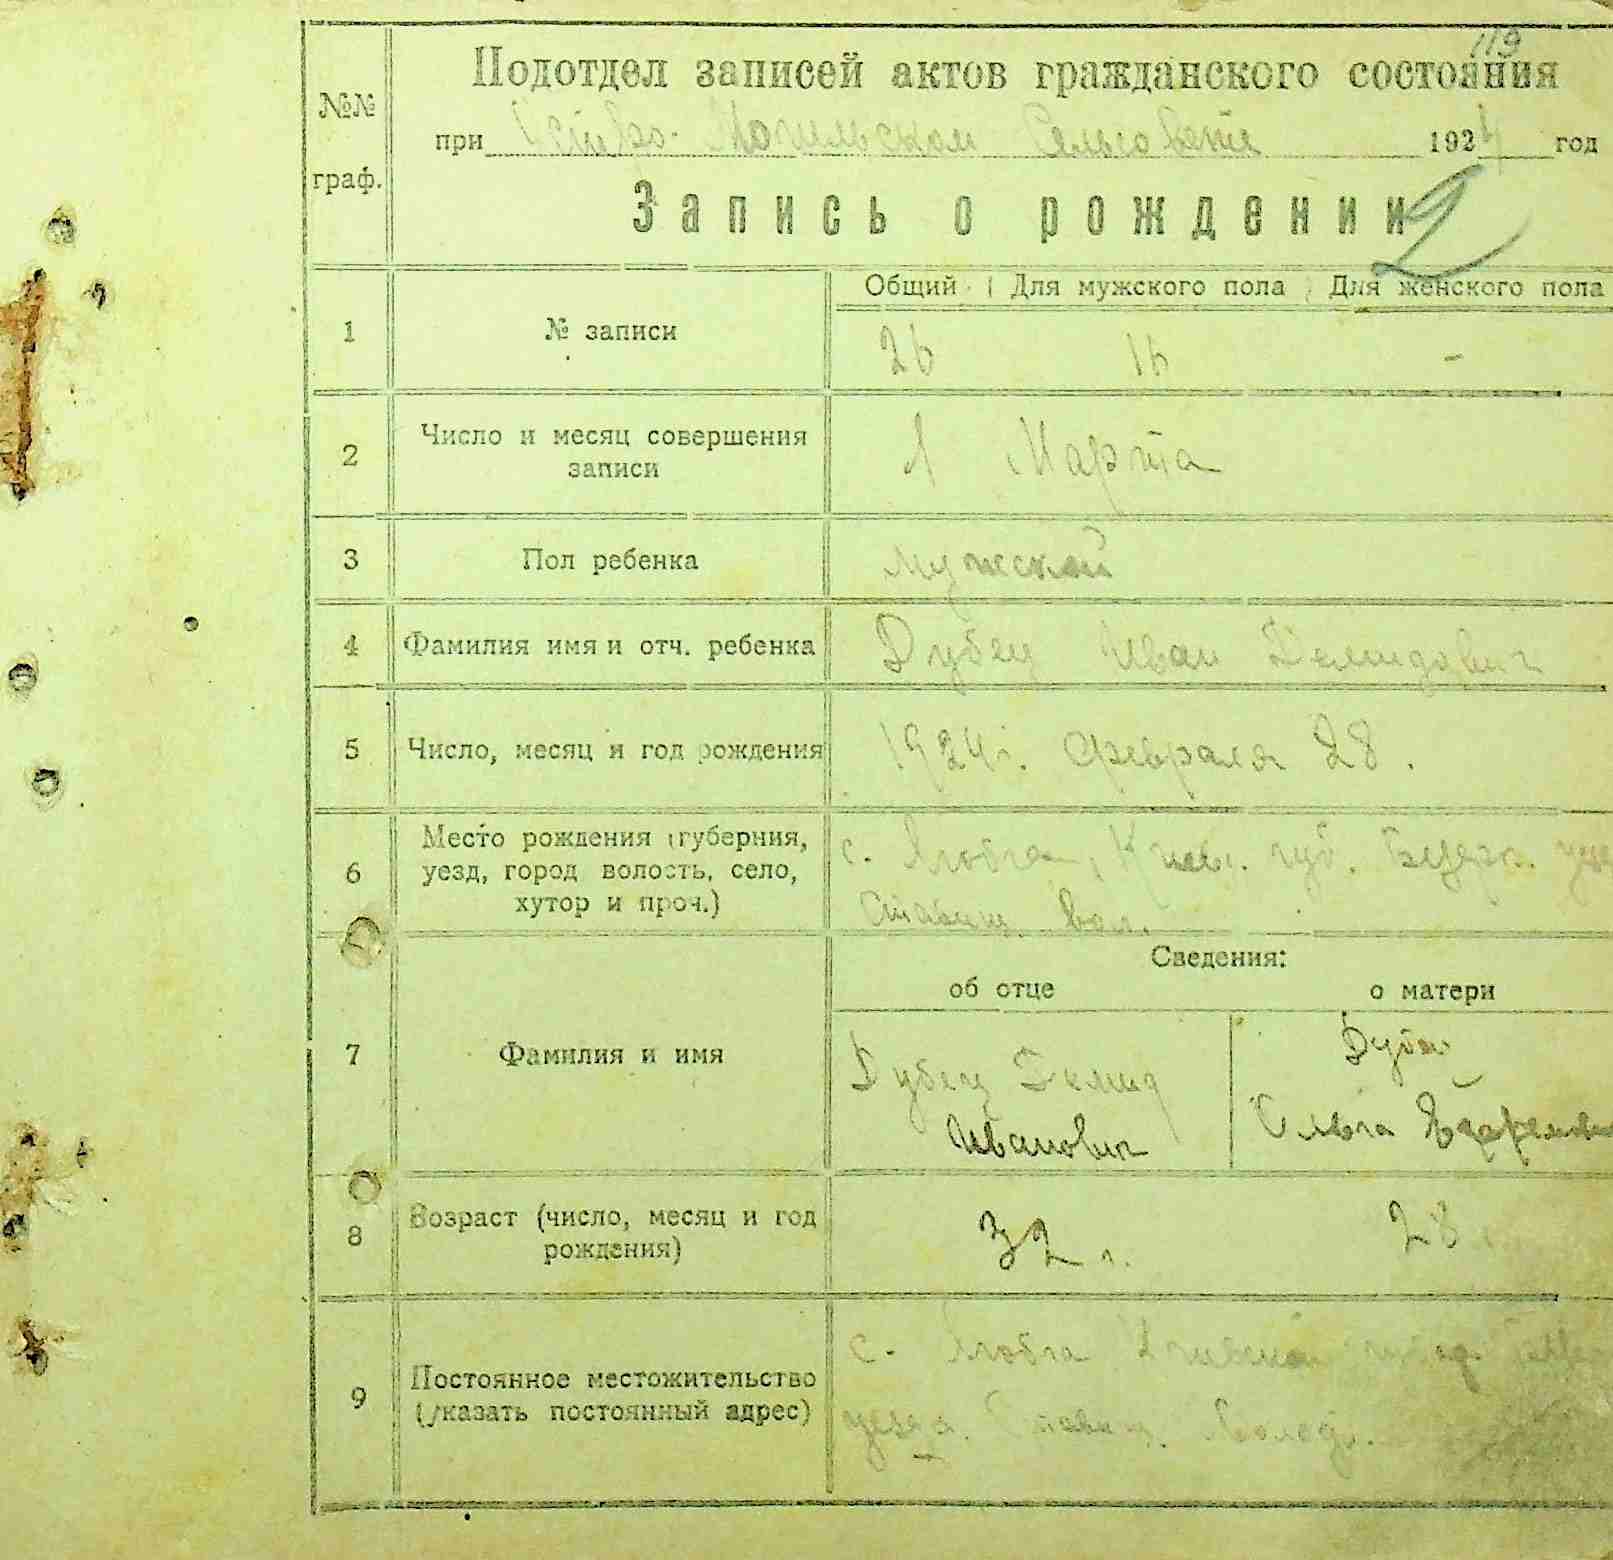 119
№№ граф.
Подотдел записей актов гражданского состояния
при Остро-Могильском Сельсовете 1924 год
Запись о рождении
2
Общий Для мужского пола Для женского пола
1 № записи 26 16 -
2 Число и месяц совершения
записи
1 Марта
3 Пол ребенка мужской
4 Фамилия имя и отч. ребенка Дубец Иван Демидович
5 Число, месяц и год рождения 1924 г. февраля 28.
6 Место рождения (губерния,
уезд, город волость, село,
хутор и проч.)
с. Киев. губ. уез
Ставищ. вол.
Сведения:
об отце о матери
7 Фамилия и имя
Дубец Демид
Иванович
Ольга
8 Возраст (число, месяц и год
рождения)
32 г. 28 г.
9 Постоянное местожительство
(указать постоянный адрес)
с. Киевской
уезд. Ставищ.